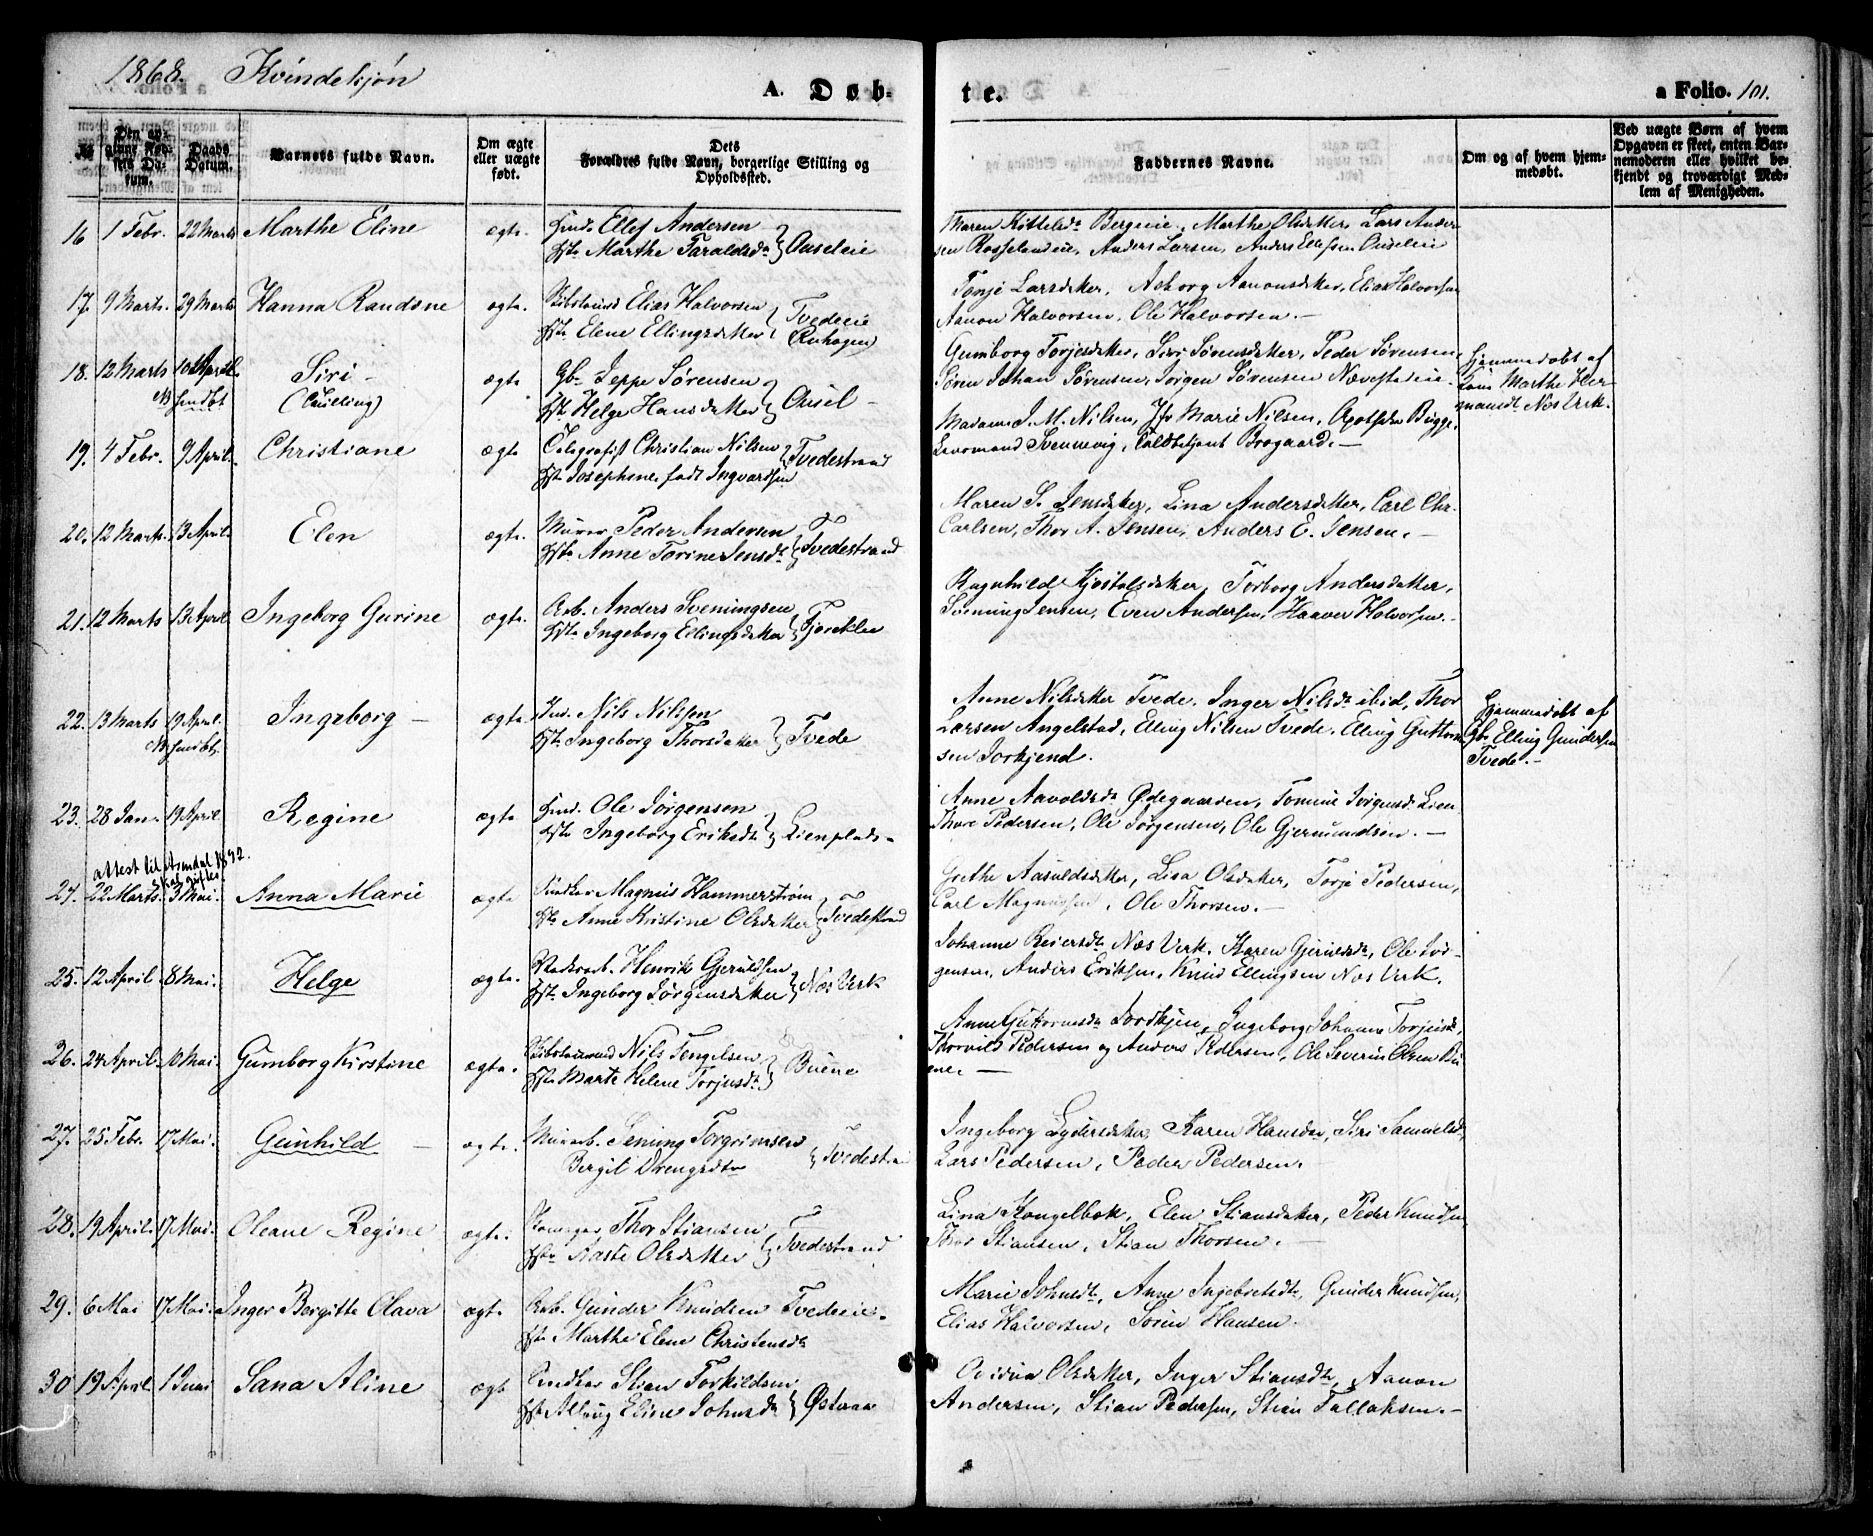 1868. Kvindekjøn
A. Døb-
te.
a Folio. 101.
No
Den an-
givne Fød-
sels Da-
tum.
Daabs
Datum.
Barnets fulde Navn.
Om ægte
eller uægte
født.
Dets
Forældres fulde Navn, borgerlige Stilling og
Opholdssted.
Faddernes Navne.
Om og af hvem hjem-
medøbt.
Ved uægte Børn af hvem
Opgaven er skeet, enten Bar-
nemoderen eller hvilket be-
kjendt og troværdigt Med-
lem af Menigheden.
16 1 Febr. 22 Marts Marthe Eline ægte Ellef Andersen
Hst. Marthe Taraldsdr } Auseleie
Maren Kittelsdr Bergeie, Marthe Olsdatter, Lars Ander-
sen Rosselandeie, Anders Larsen, Anders Ellefsen Auseleie
17. 9 Marts. 29 Marts Hanna Randsne ægte. Elias Halvorsen
Hst. Elene Ellingsdatter } Tvedeeie
Tonje Larsdatter, Aanonsdatter, Elias Halvorsen
Aanon Halvorsen, Ole Halvorsen.
18. 12 Marts 10 April Siri
NB
(Tvilling)
ægte Gb. Jeppe Sørensen
Hst. Helge Hansdatter } Ausel
Gumborg Torjesdatter, Siri Sørensdatter, Peder Sørensen,
Søren Johan Sørensen, Jørgen Sørensen Nævestadeie
Hjemmedøbt af
Kone Marthe Her-
mansdr Næs Verk.
19. 4 Febr. 9 April. Christiane ægte Telegrafist Christian Nilsen
Hst. Josephine, født Ingvardsen } Tvedestrand
Madame J. M. Nilsen, Jfr Marie Nilsen, Apotheker Bugge,
Svennevig, Toldbetjent Brogaard.
20. 12 Marts. 13 April. Elen ægte. Murer Peder Andersen
Hst. Anne Torine Jensdr } Tvedestrand
Maren S. Jensdatter, Lina Andersdatter, Carl Chr.
Carlsen, Thor A. Jensen, Anders E. Jensen.
21. 12 Marts 13 April Ingeborg Gurine ægte. Arb. Anders Sveningsen
Hst. Ingeborg Ellingsdatter } Fjæreklev
Ragnhild Kjøstolsdatter, Torborg Andersdatter,
Svenning Jensen, Even Andersen, Haaver Halvorsen.
22. 13 Marts 19 April. Ingeborg
NB
ægte. Nils Nilssen
Hst. Ingeborg Thorsdatter } Tvede
Anne Nilsdatter Tvede, Inger Nilsdr ibid, Thor
Larsen Angelstad, Elling Nilsen Tvede, Elling Guttorm-
sen Jorkjend.
Hjemmedøbt af
Gb. Elling Gundersen
Tvede.
23. 28 Jan. 19 April Regine ægte Ole Jørgensen
Hst. Ingeborg Eriksdr } Lienplads
Anne Aavoldsdr Ødegaarden, Tomine Jørgensdr Lien
Thore Pedersen, Ole Jørgensen, Ole Gjermundsen.
attest til Arendal 1892.
skal giftes
24. 22 Marts. 3 Mai. Anna Marie ægte Magnus Hammerstrøm
Hst. Anne Kristine Olsdatter } Tvedestrand
Grethe Aasuldsdatter, Lisa Olsdatter, Torje Pedersen,
Carl Magnussen, Ole Thorsen.
25. 12 April 8 Mai. Helge ægte. Henrik Gjeruldsen
Hst. Ingeborg Jørgensdatter } Næs Verk
Johanne Reiersdr Næs Verk, Karen Gjeruldsdr, Ole Jør-
gensen, Anders Eriksen, Knud Ellingsen Næs Verk.
26. 24 April. 10 Mai. Gumborg Kirstine ægte. Nils Tengelsen
Hst. Marte Helene Torjusdr } Buene
Anne Guttormsdr Jordkjen, Ingeborg Johanne Torjesdr,
Thorvild Pedersen og Anders Pedersen, Ole Severin Olsen Bu-
ene.
27. 25 Febr. 17 Mai. Gunhild ægte. Torgrimsen
Bergit Drengsdtr } Tvedestra
Ingeborg Lydersdatter, Karen Hansdr, Siri Samuelsd.
Lars Pedersen, Peder Pedersen.
28. 19 April. 17 Mai. Oleane Regine ægte. Thor Stiansen
Hst. Aaste Olsdatter } Tvedestrand
Lina Kongelbok, Elen Stiansdatter, Peder Knudsen
Thor Stiansen, Stian Thorsen.
29. 6 Mai 17 Mai. Inger Bergitte Olava ægte Arb. Gunder Knudsen Tvedeeie.
Hst. Marthe Elene Christensdr
Marie Johnsdr, Anne Ingebretsdr, Gunder Knudsen,
Elias Halvorsen, Søren Hansen.
30 19 April 1 Juni Sana Aline ægte Stian Torkildsen
Hst. Eline Johnsdr } Østeraa
Olsdatter, Inger Stiansdr, Aanon
Andersen, Stian Pedersen, Stian Tallaksen.